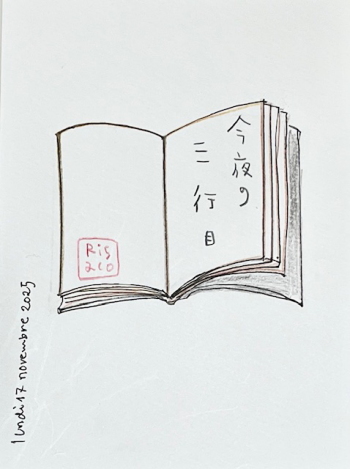 今夜の
三行目
Ris
2co
lundi 17 novembre 2025